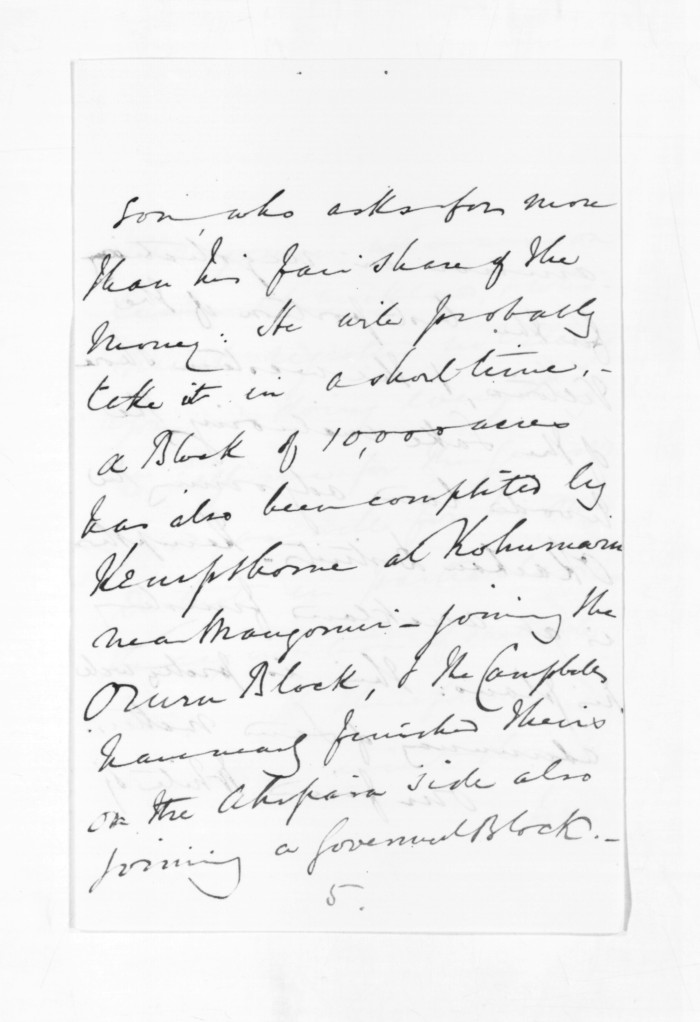 son, who asks for more
than his fair share of the
money: He will probably
take it in a short time. -
a Block of 10,000 acres
has also been completed by
Kempthorne at Kohumaru
near Mangonui - joining the
Oruru Block, & the Campbells
have nearly finished theirs
on the Ahipara side also
joining a Government Block. -
5.